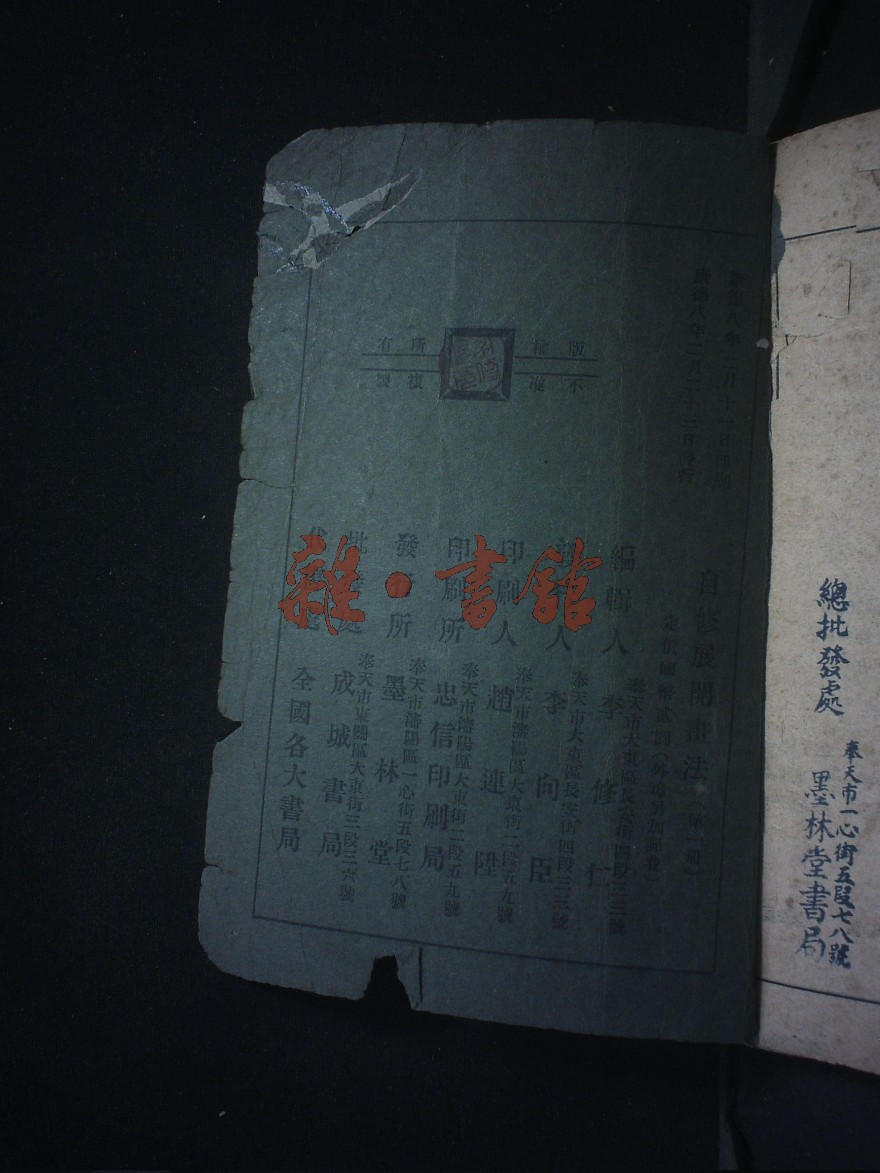 康德八年二月十一日印刷
康德八年二月二十二日發行
自修展開畫法
版權所有
不准複製
編輯人
奉天市大東區長安街四段三三號
李修仁
人
奉天市大東區長安街四段三三號
李向臣
印刷人
奉天市瀋陽區大東街二段五九號
趙連陞
印刷所
奉天市瀋陽區大東街二段五九號
忠信印刷局
發行所
奉天市瀋陽區一心街五段七八號
墨林堂
批發處
奉天市東關區大東街三段三六號
成城書局
全國各大書局
雜·書館
總批發處
奉天市一心街五段七八號
墨林堂書局